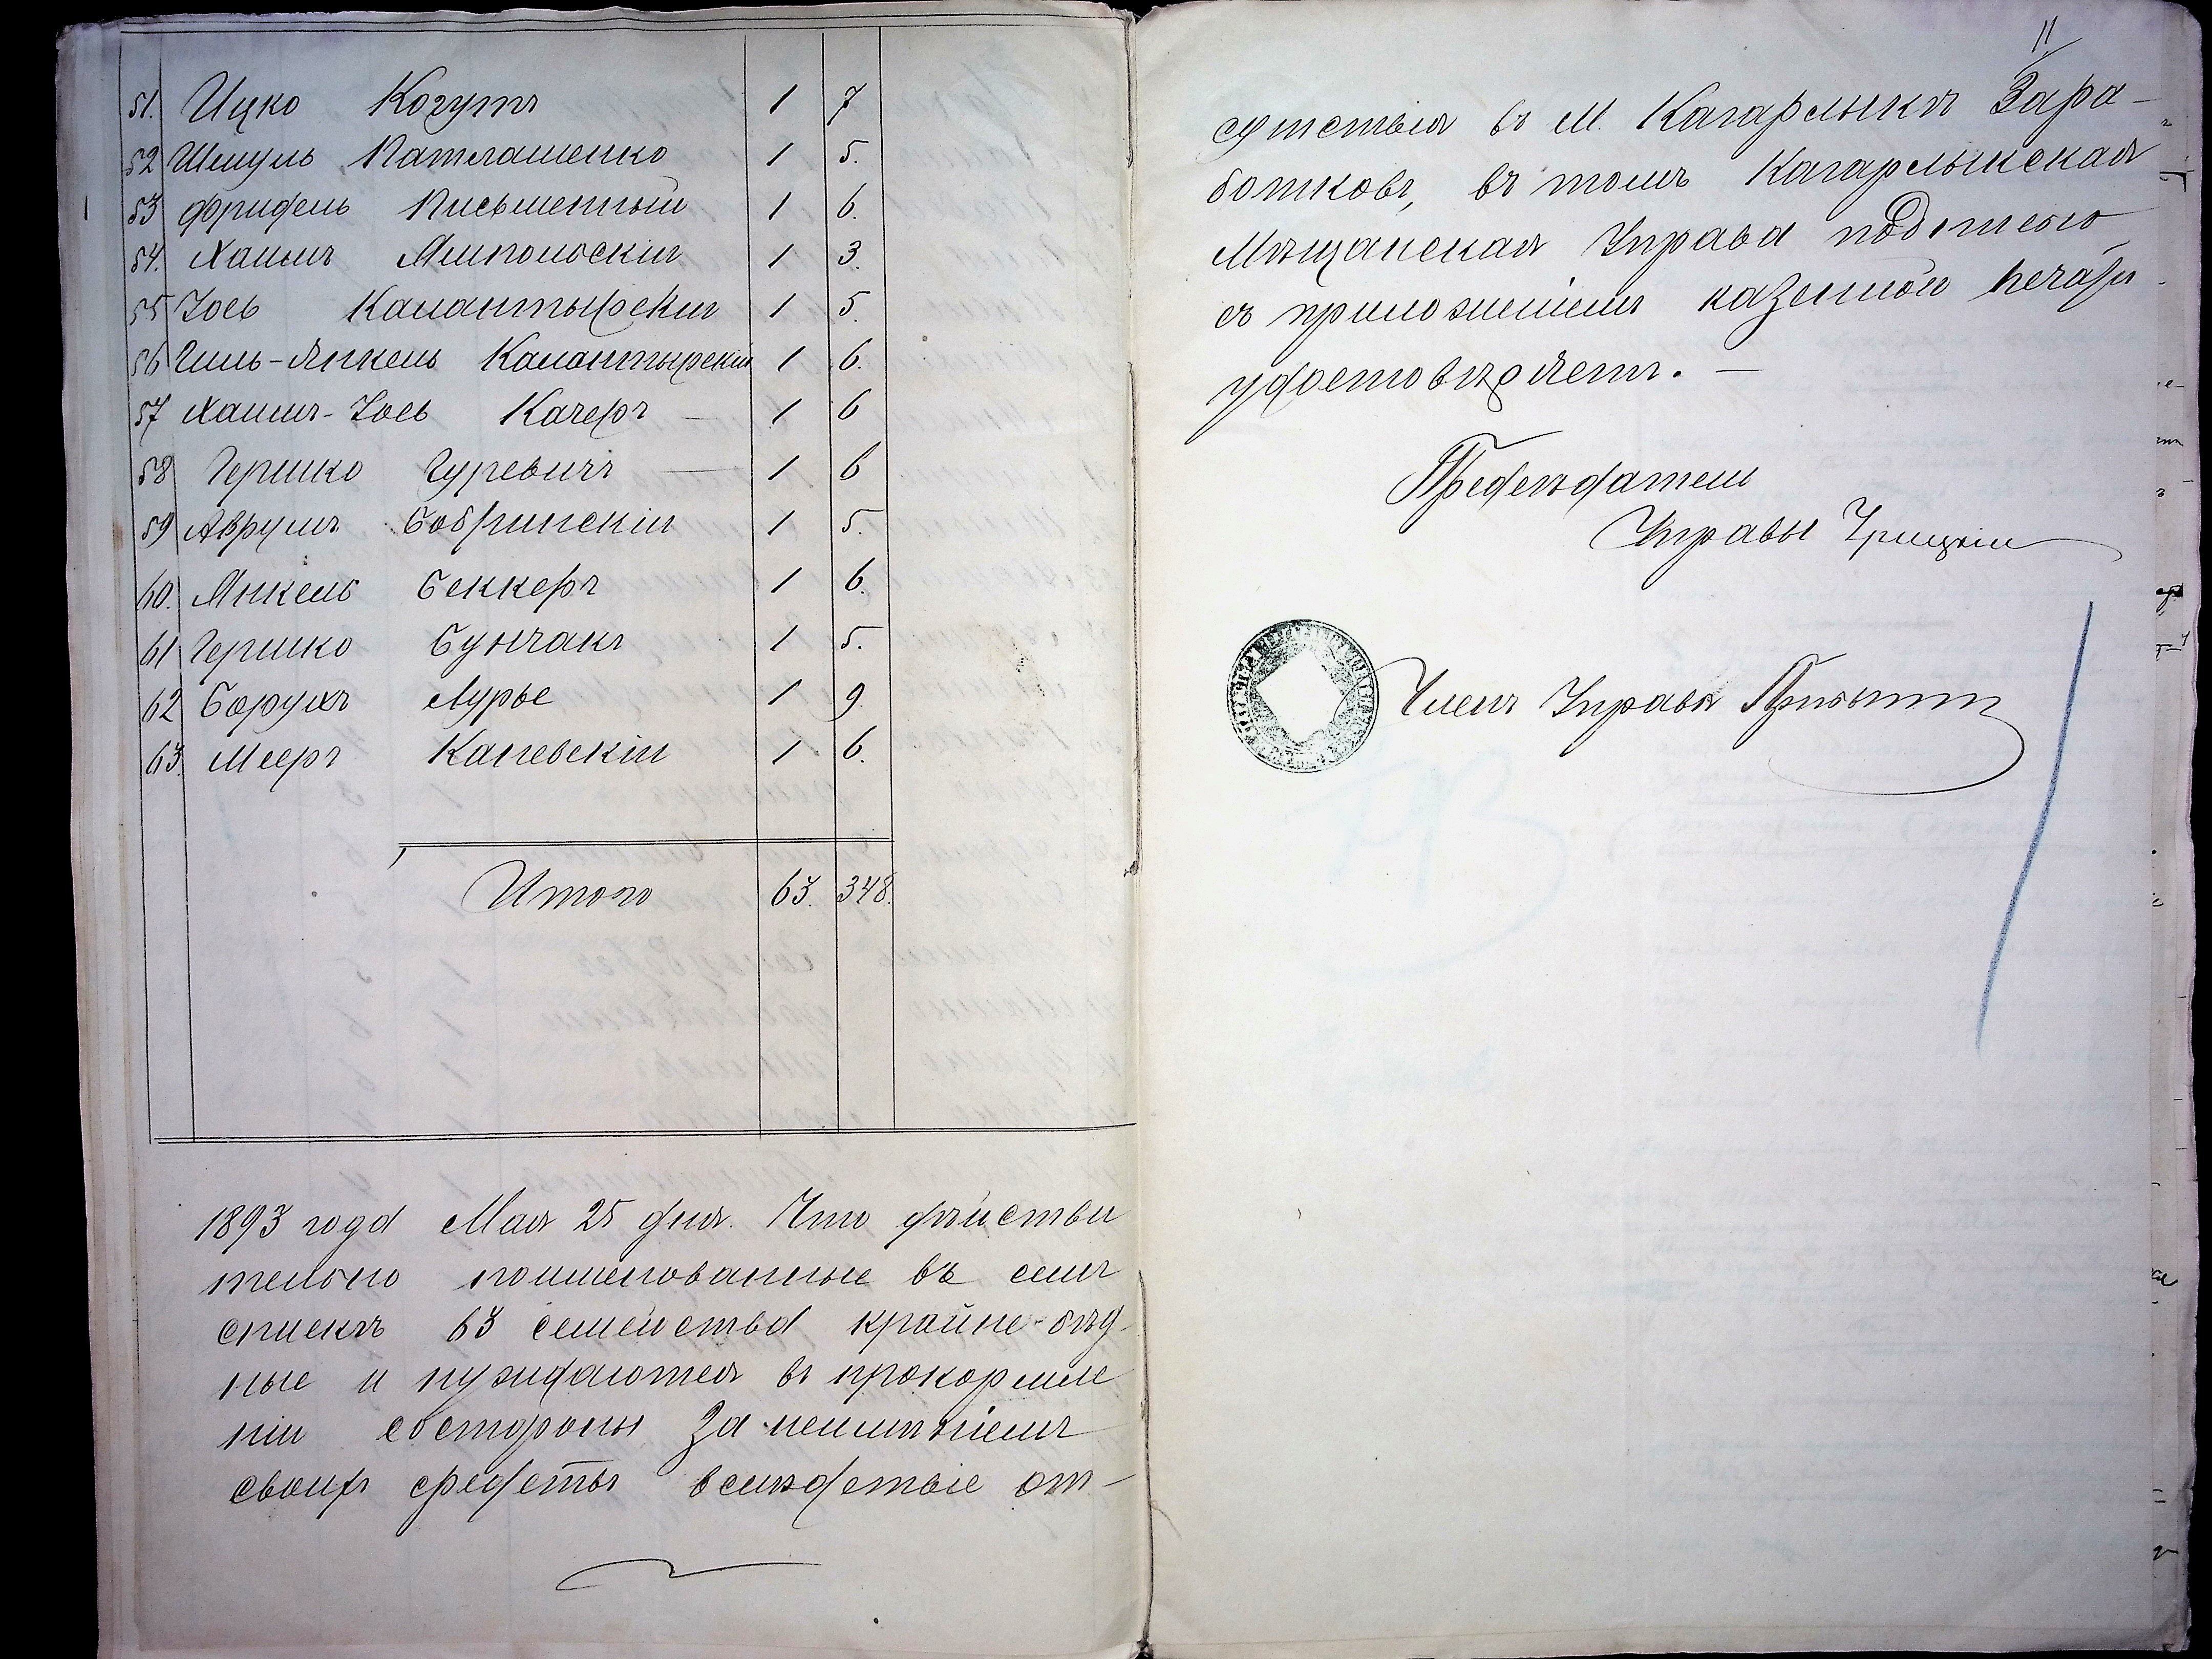 51. Ицко Когутъ 1 7
52 Шмуль Патлашенко 1 5.
53 Фридель Письменный 1 6.
54. Хаимъ Ямпольскій 1 3.
55 Іось Калантырскій 1 5.
56 Гиль-Янкель Калантырскій 1 6.
57 Хаимъ-Іось Качеръ — 1 6
58 Гершко Гуревичъ — 1 6
59 Аврумъ Бобринскій 1 5.
60. Янкель Беккеръ 1 6.
61 Гершко Бунчакъ 1 5.
62 Борухъ Лурье 1 9.
63. Мееръ Каневскій 1 6.
Итого 63. 348.
1893 года Мая 25 дня. Что дѣйстви
тельно поименованные въ семъ
спискѣ 63 семейства крайне-бѣд-
ные и нуждаются въ прокормле
ніи состороны за неимѣніемъ
своихъ средствъ вслѣдствіе от-
11
сутствія въ М. Кагарлыкѣ Зара-
ботковъ, въ томъ Кагарлыкская
Мѣщанская Управа подписью
съ приложеніемъ казенной печати
удостовѣряетъ. —
Предсѣдатель
Управы
Членъ Управы